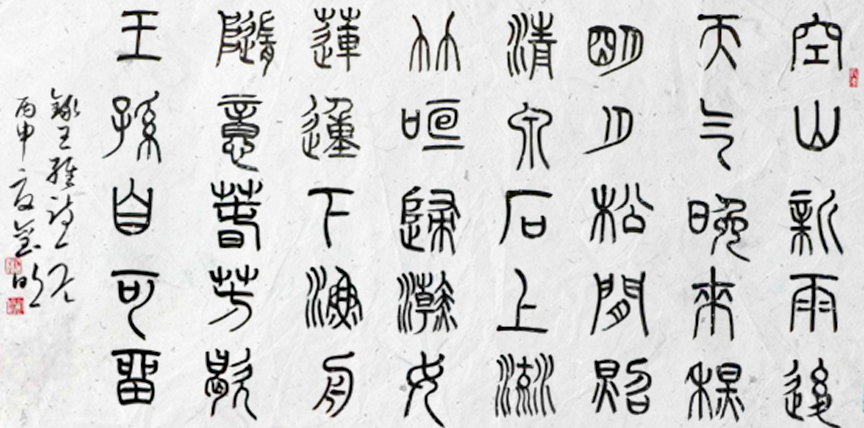 空山新雨後
天气晚來秋
明月松間照
清泉石上流
竹喧歸澣女
蓮動下漁舟
隨意春芳歇
王孫自可留
錄王維詩一
丙申夏